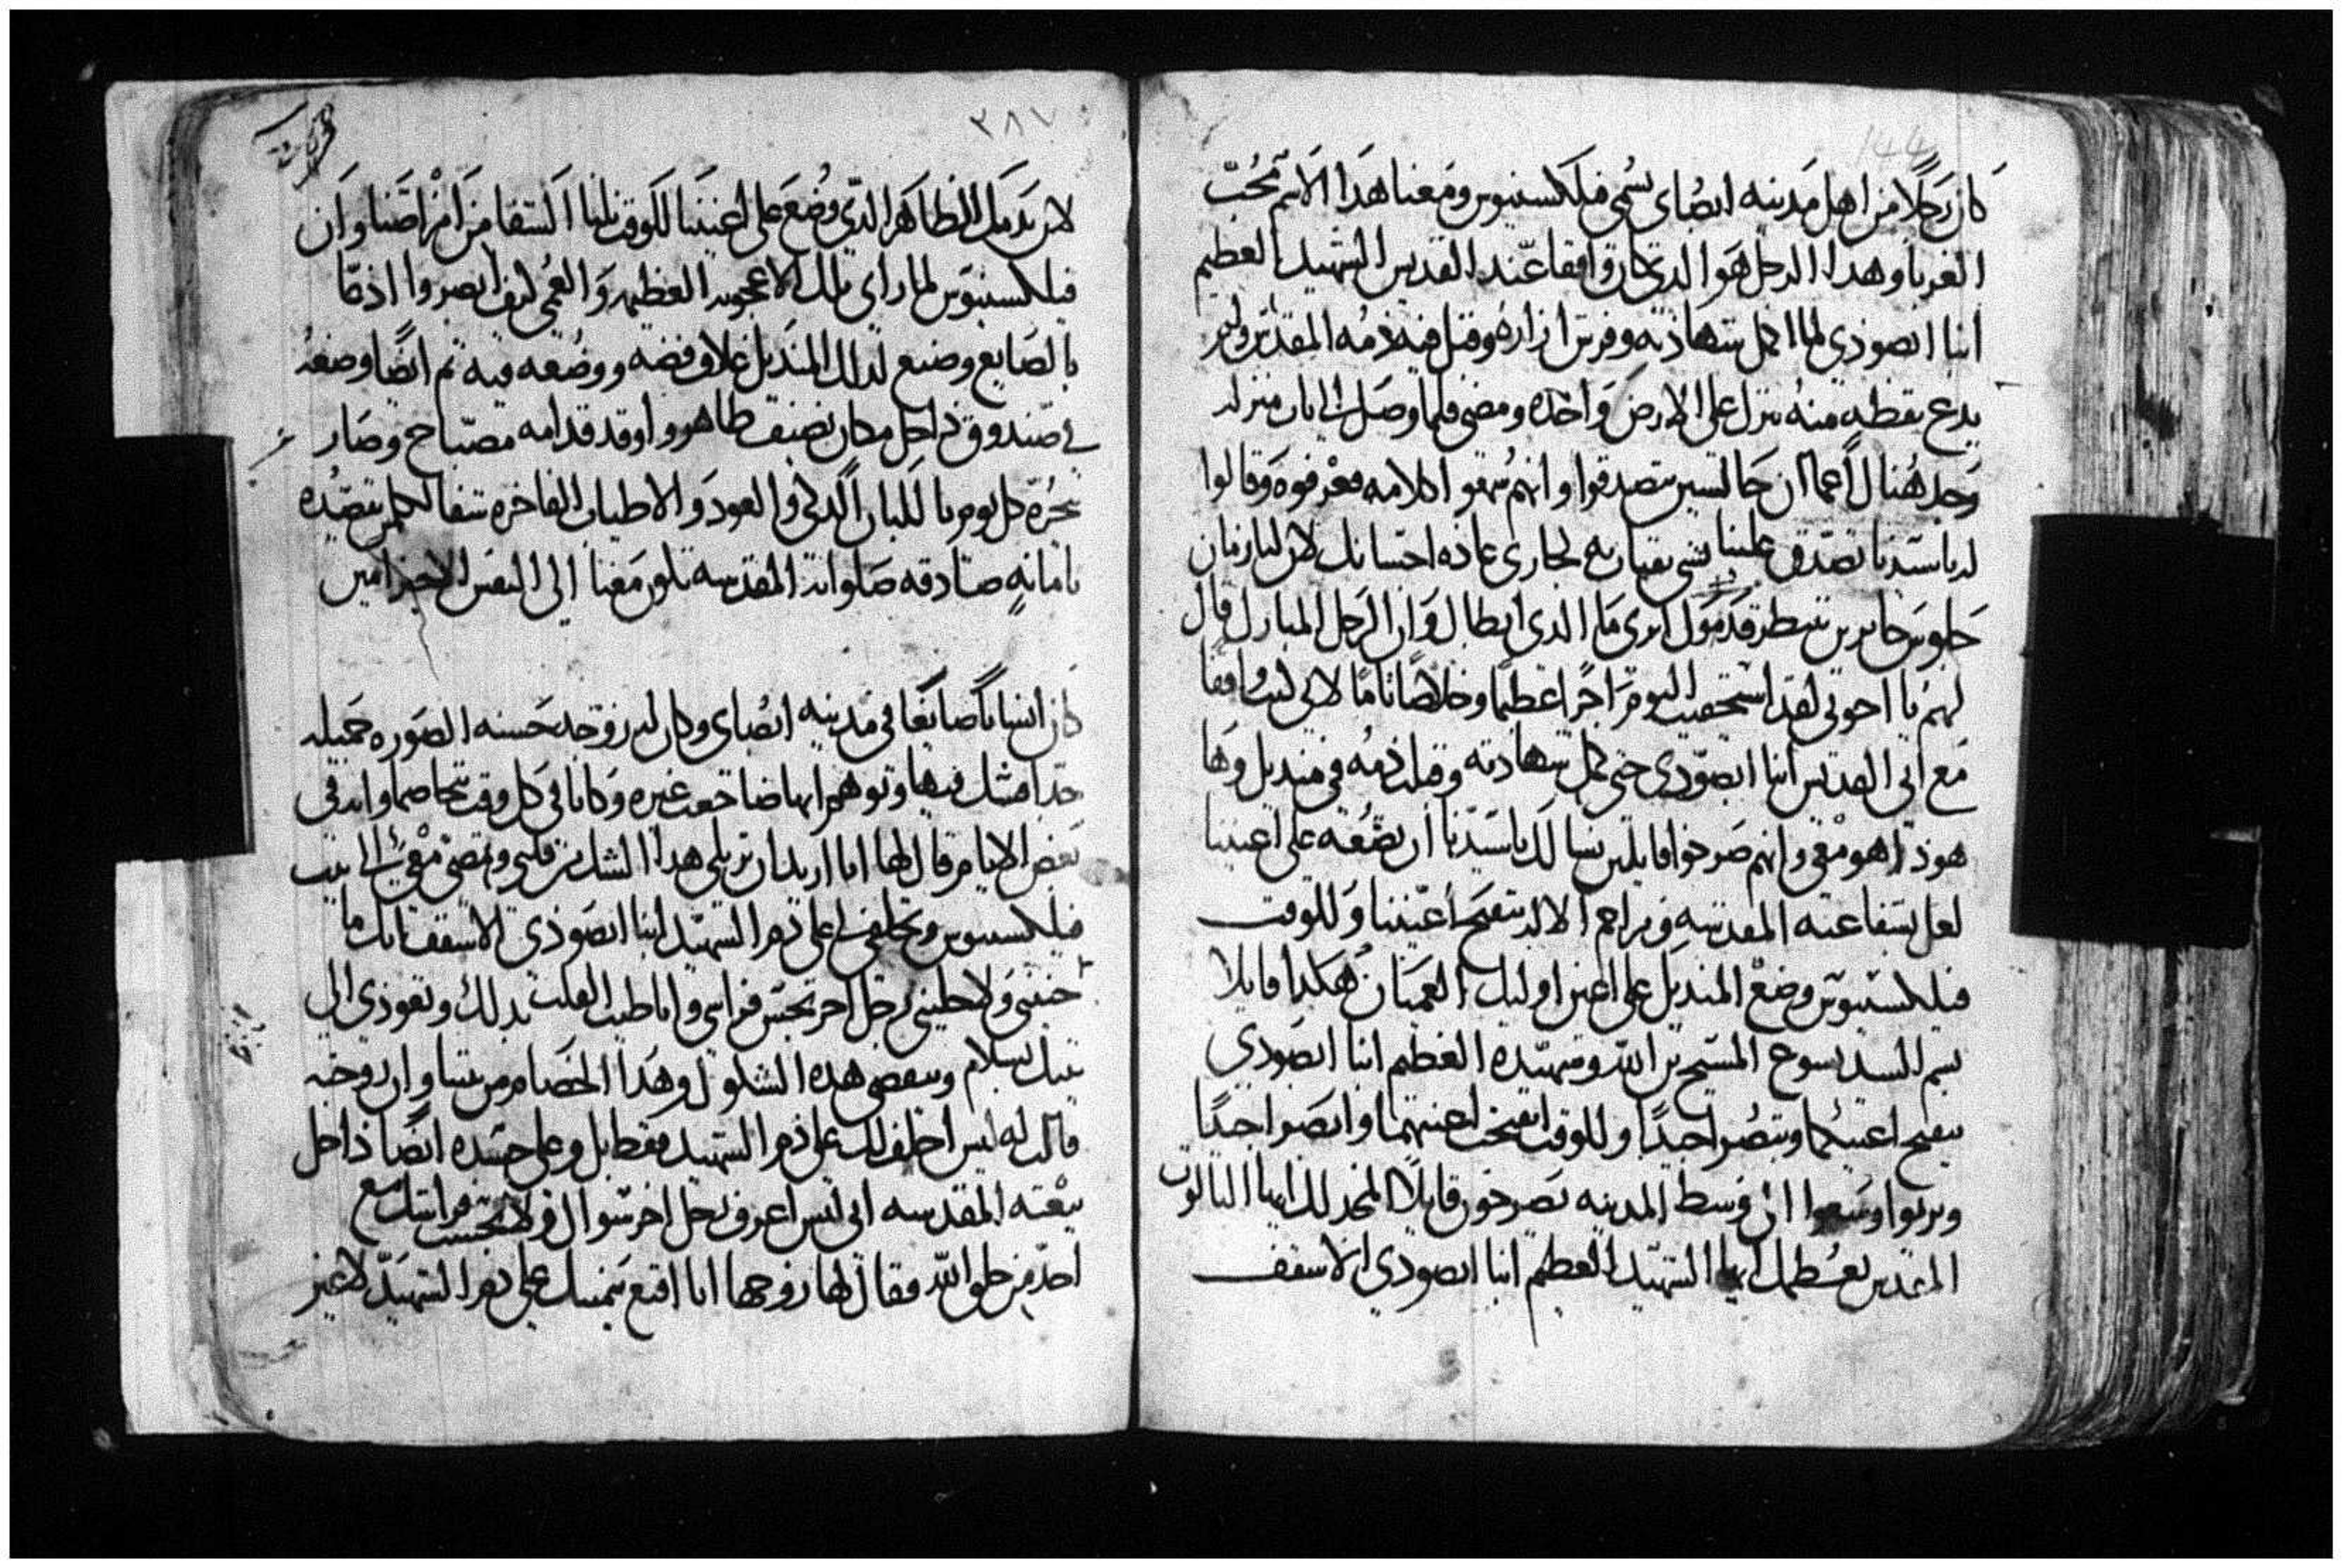 كان رجلاً من اهل مدينه ابصاى يسُمى فيلكسينوس ومعنا هدا الاسم مُحبّ
الغربا وهدا الرجل هوا الدى كان واقفا عند القديس الشهيد العظيم
انبا ابصودي لما اكمل شهادته وفرش ازاره وقبل فيه دمه المقدس ولم
يدع نقطه منه تنزل على الارض واخده ومضى فلما وصل الى باب منزله
وجد هُناك اعماان جالسين يتصدقوا وانهم سمعوا كلامه فعرفوه وقالوا
له ياسيدنا تصدق علينا بشي نقتات به لجارى عاده احسانك لان لنا زمان
جلوس حايرين ننتظر قدومك ترى ما الدى ابطاك وان الرجل المبارك قال
لهم يا اخوتي لقد استحقيت اليوم اجراً عظيما وخلاصًا تامًا لانى كنت واقفا
مع ابى القديس انبا ابصودى حتى كمل شهادته وقبلت دمه في منديل وها
هودا هو معي وانهم صرخوا قايلين نسالك ياسيدنا ان تضعه على اعيننا
لعل بشفاعته المقدسه ومراحم الاله تنفتح اعيننا وللوقت
فيلكسينوس وضع المنديل على اعين اوليك العميان هكدا قايلا
بسم السيد يسوع المسيح بن الله وشهيده العظيم انبا ابصودى
تنفتح اعينكما وتبصُرا جيدًا وللوقت انفتحت اعينهما وابصرا جيدًا
وبريوا وسعوا الى وسط المدينه يصرخون قايلاً المجد لك ايها التالوت
المقدس نعُظمك ايها الشهيد العظيم انبا ابصودي الاسقف
٣٨٧
لان بدمك الطاهر الدّي وُضع على اعيننا للوقت نلنا الشفا من امراضنا وان
فيلكسينوس لما راى تلك الاعجوبه العظيمه والعُمى كيف ابصروا اد دعا
بالصايع وصنع لدلك المنديل غلاف فضه ووضعه فيه تم ايضًا وضعه
في صندوق داخل مكان نضيف طاهر واوقد قدامه مصباح وصار
يبخره كل يوم باللبان الدكى والعود والاطياب الفاخره شفا لكلمن يقصده
بامانه صادقه صلواته المقدسه تكون معنا الى النفس الاخير امين
كان انسانًا صايغًا في مدينه ابصاى وكان له زوجه حسنه الصوره جميله
جدا فشك فيها وتوهم انها ضاجعت غيره وكانا في كل وقت يتخاصما وانه في
بعض الايام قال لها انا اريد ان تزيلي هدا الشك من قلبي وتمضي معي الى بيت
فيلكسينوس وتحلفي لى على دم الشهيد انبا ابصودى الاسقف انك ما
خنتنى ولا خليتى رجل اخر نجس فراشى وانا طيب القلب بدلك ونعودى الى
بيتك بسلام وينقضى هده الشكوك وهدا الخصام من بيننا وان زوجته
قالت له ليس احلف لك على دم الشهيد فقط بل وعلى جسده ايضًا داخل
بيعته المقدسه انى ليس اعرف رجل اخر سواك ولا نجست فراشك مع
احد من خلق الله فقال لها زوجها انا اقنع بيمينك على دم الشهيد لاغير